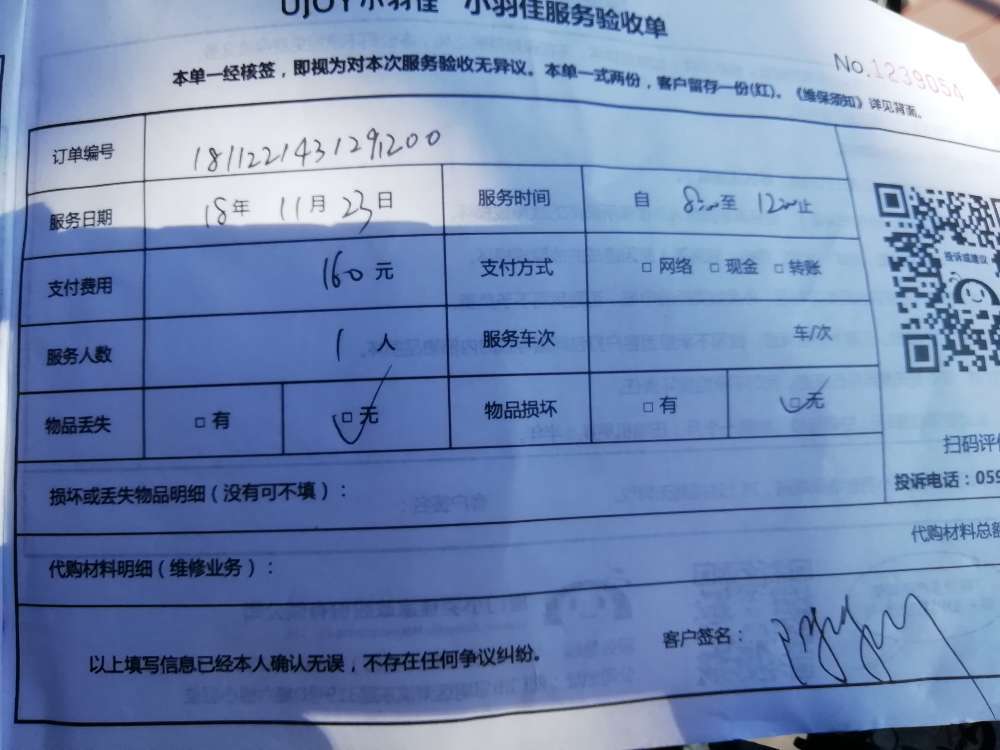 UJOY小羽佳 小羽佳服务验收单
No.1239054
本单一经核签，即视为对本次服务验收无异议。本单一式两份，客户留存一份(红)。《维保须知》详见背面。
订单编号 181122143129200
服务日期 18年 11月 23日 服务时间 自 8:00至 12:00止
支付费用 160元 支付方式 □网络 □现金 □转账
服务人数 1 人 服务车次 车/次
物品丢失 □有 □无 物品损坏 □有 □无
投诉或建议
扫码评
损坏或丢失物品明细（没有可不填）：
投诉电话：059
代购材料总额
代购材料明细（维修业务）：
以上填写信息已经本人确认无误，不存在任何争议纠纷。
客户签名：